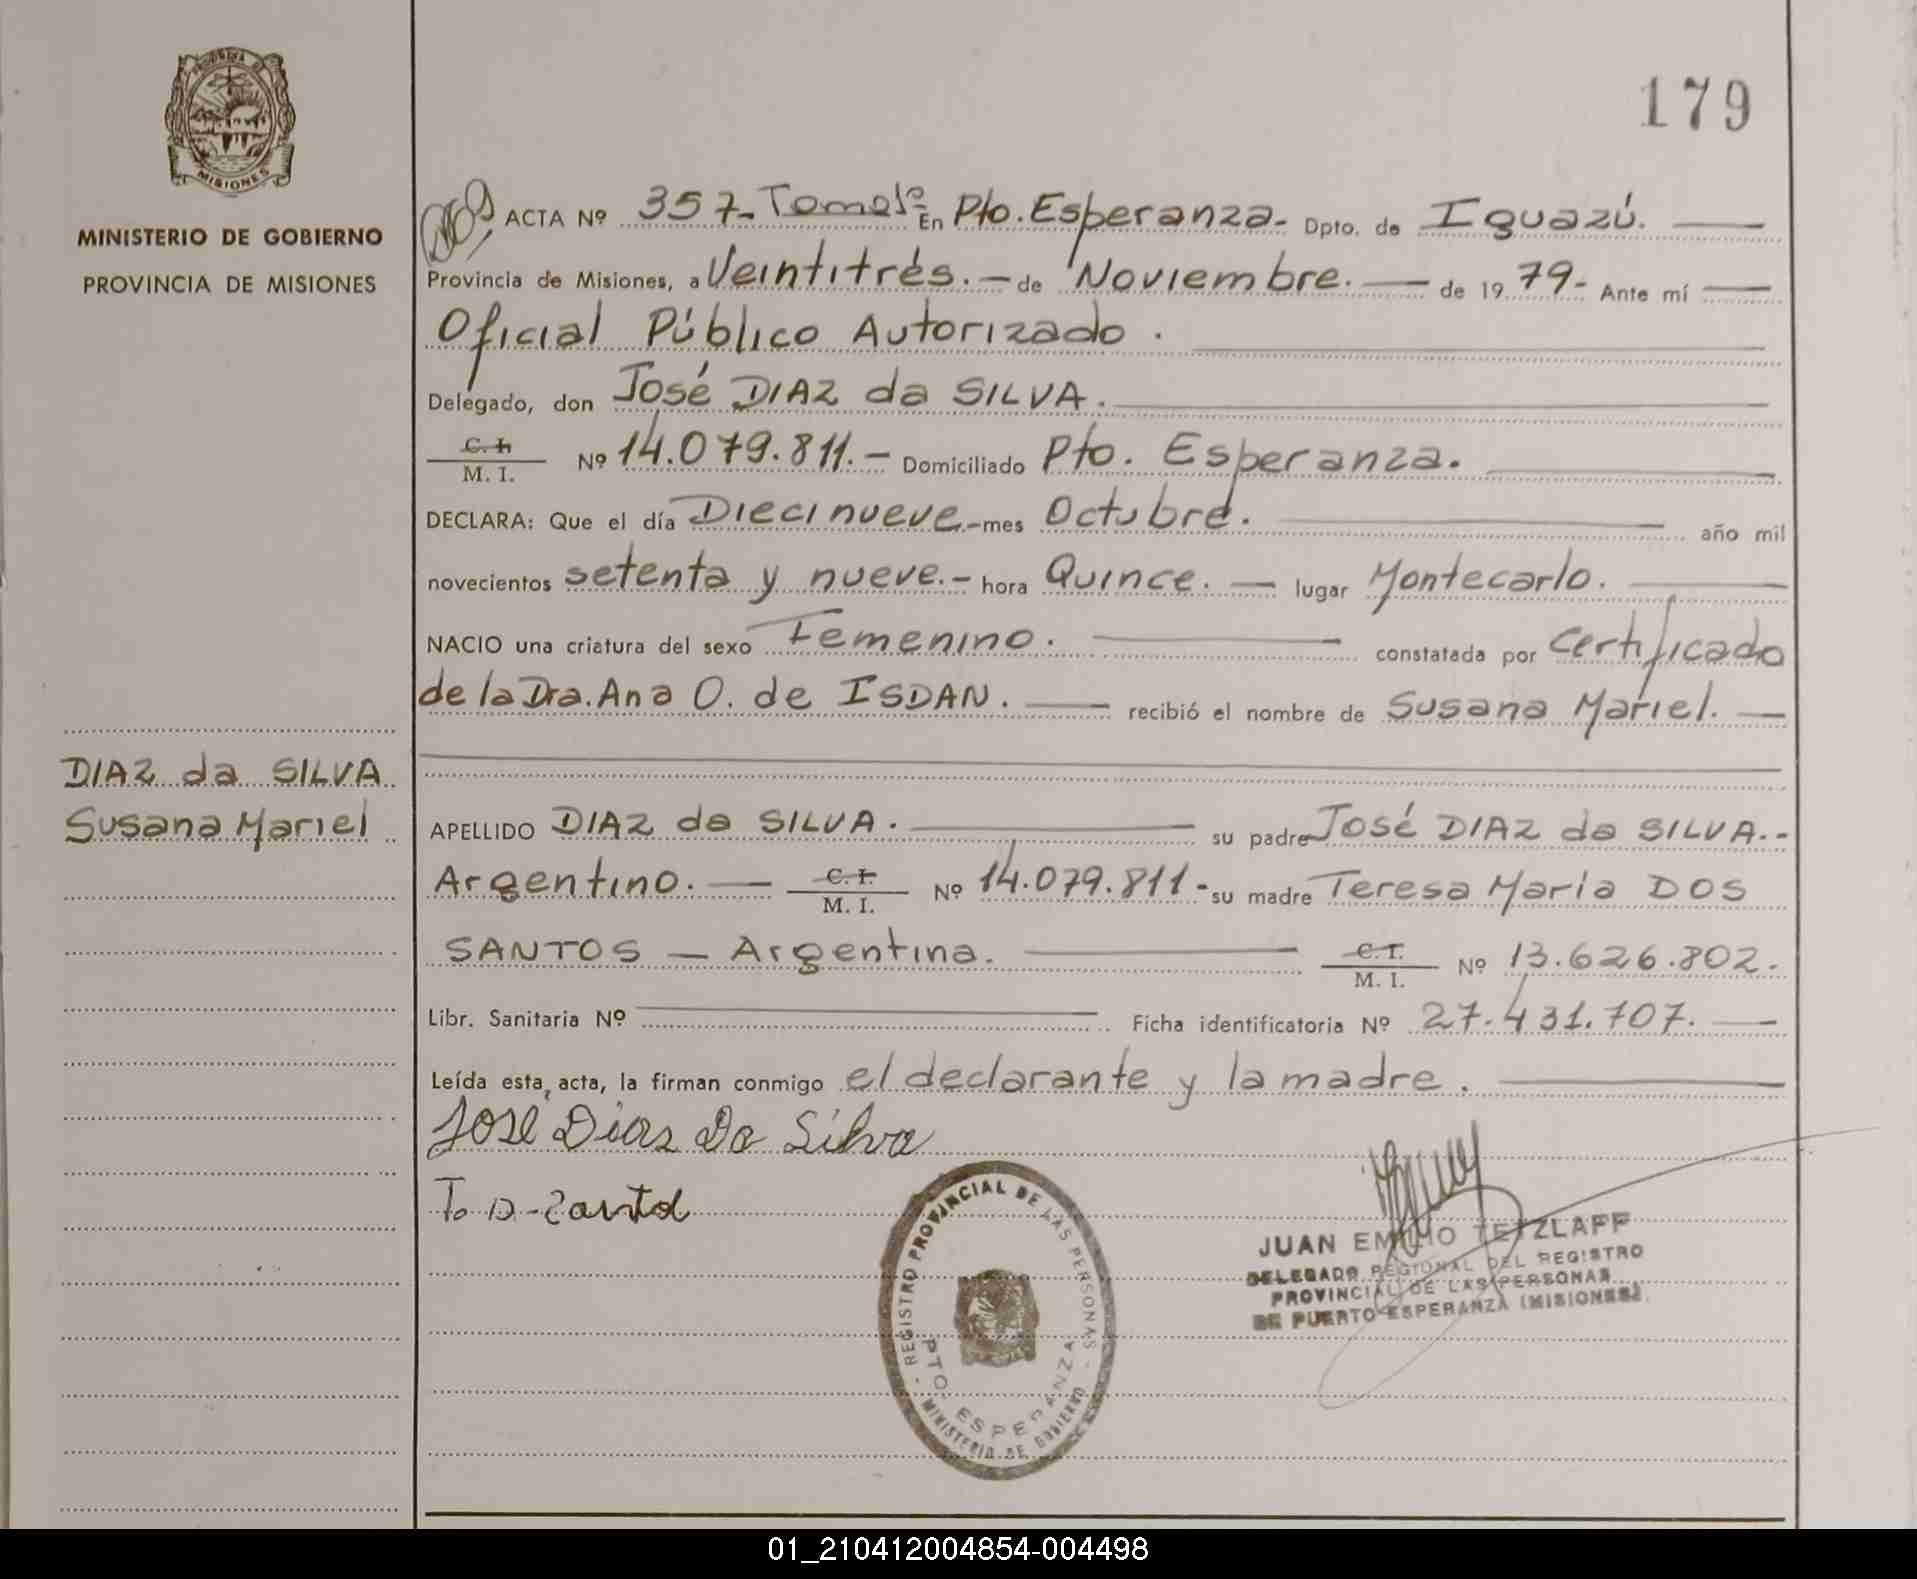 179
PROVINCIA DE
MISIONES
MINISTERIO DE GOBIERNO
PROVINCIA DE MISIONES
ACTA Nº 357- Tomo 1º En Pto. Esperanza.- Dpto. de Iguazú.
Provincia de Misiones, a Veintitrés.- de Noviembre. de 1979- Ante mí
Oficial Público Autorizado.
Delegado, don José DIAZ da SILVA.
C. I.
M. I.
Nº 14.079.811.- Domiciliado Pto. Esperanza.
DECLARA: Que el día Diecinueve.- mes Octubre. año mil
novecientos setenta y nueve.- hora Quince. lugar Montecarlo.
NACIO una criatura del sexo Femenino. constatada por Certificado
de la Dra. Ana O. de ISDAN. recibió el nombre de Susana Mariel.
DIAZ da SILVA
Susana Mariel
APELLIDO DIAZ da SILVA. su padre José DIAZ da SILVA.-
Argentino. C. I. M. I. Nº 14.079.811- su madre Teresa María DOS
SANTOS - Argentina. C. I. M. I. Nº 13.626.802.
Libr. Sanitaria Nº Ficha identificatoria Nº 27.431.707.
Leída esta acta, la firman conmigo el declarante y la madre.
José Dias Da Silva
REGISTRO PROVINCIAL DE LAS PERSONAS
PTO. ESPERANZA
MINISTERIO DE GOBIERNO
JUAN EMILIO TETZLAFF
DELEGADO REGIONAL DEL REGISTRO
PROVINCIAL DE LAS PERSONAS
DE PUERTO ESPERANZA (MISIONES)
01_210412004854-004498